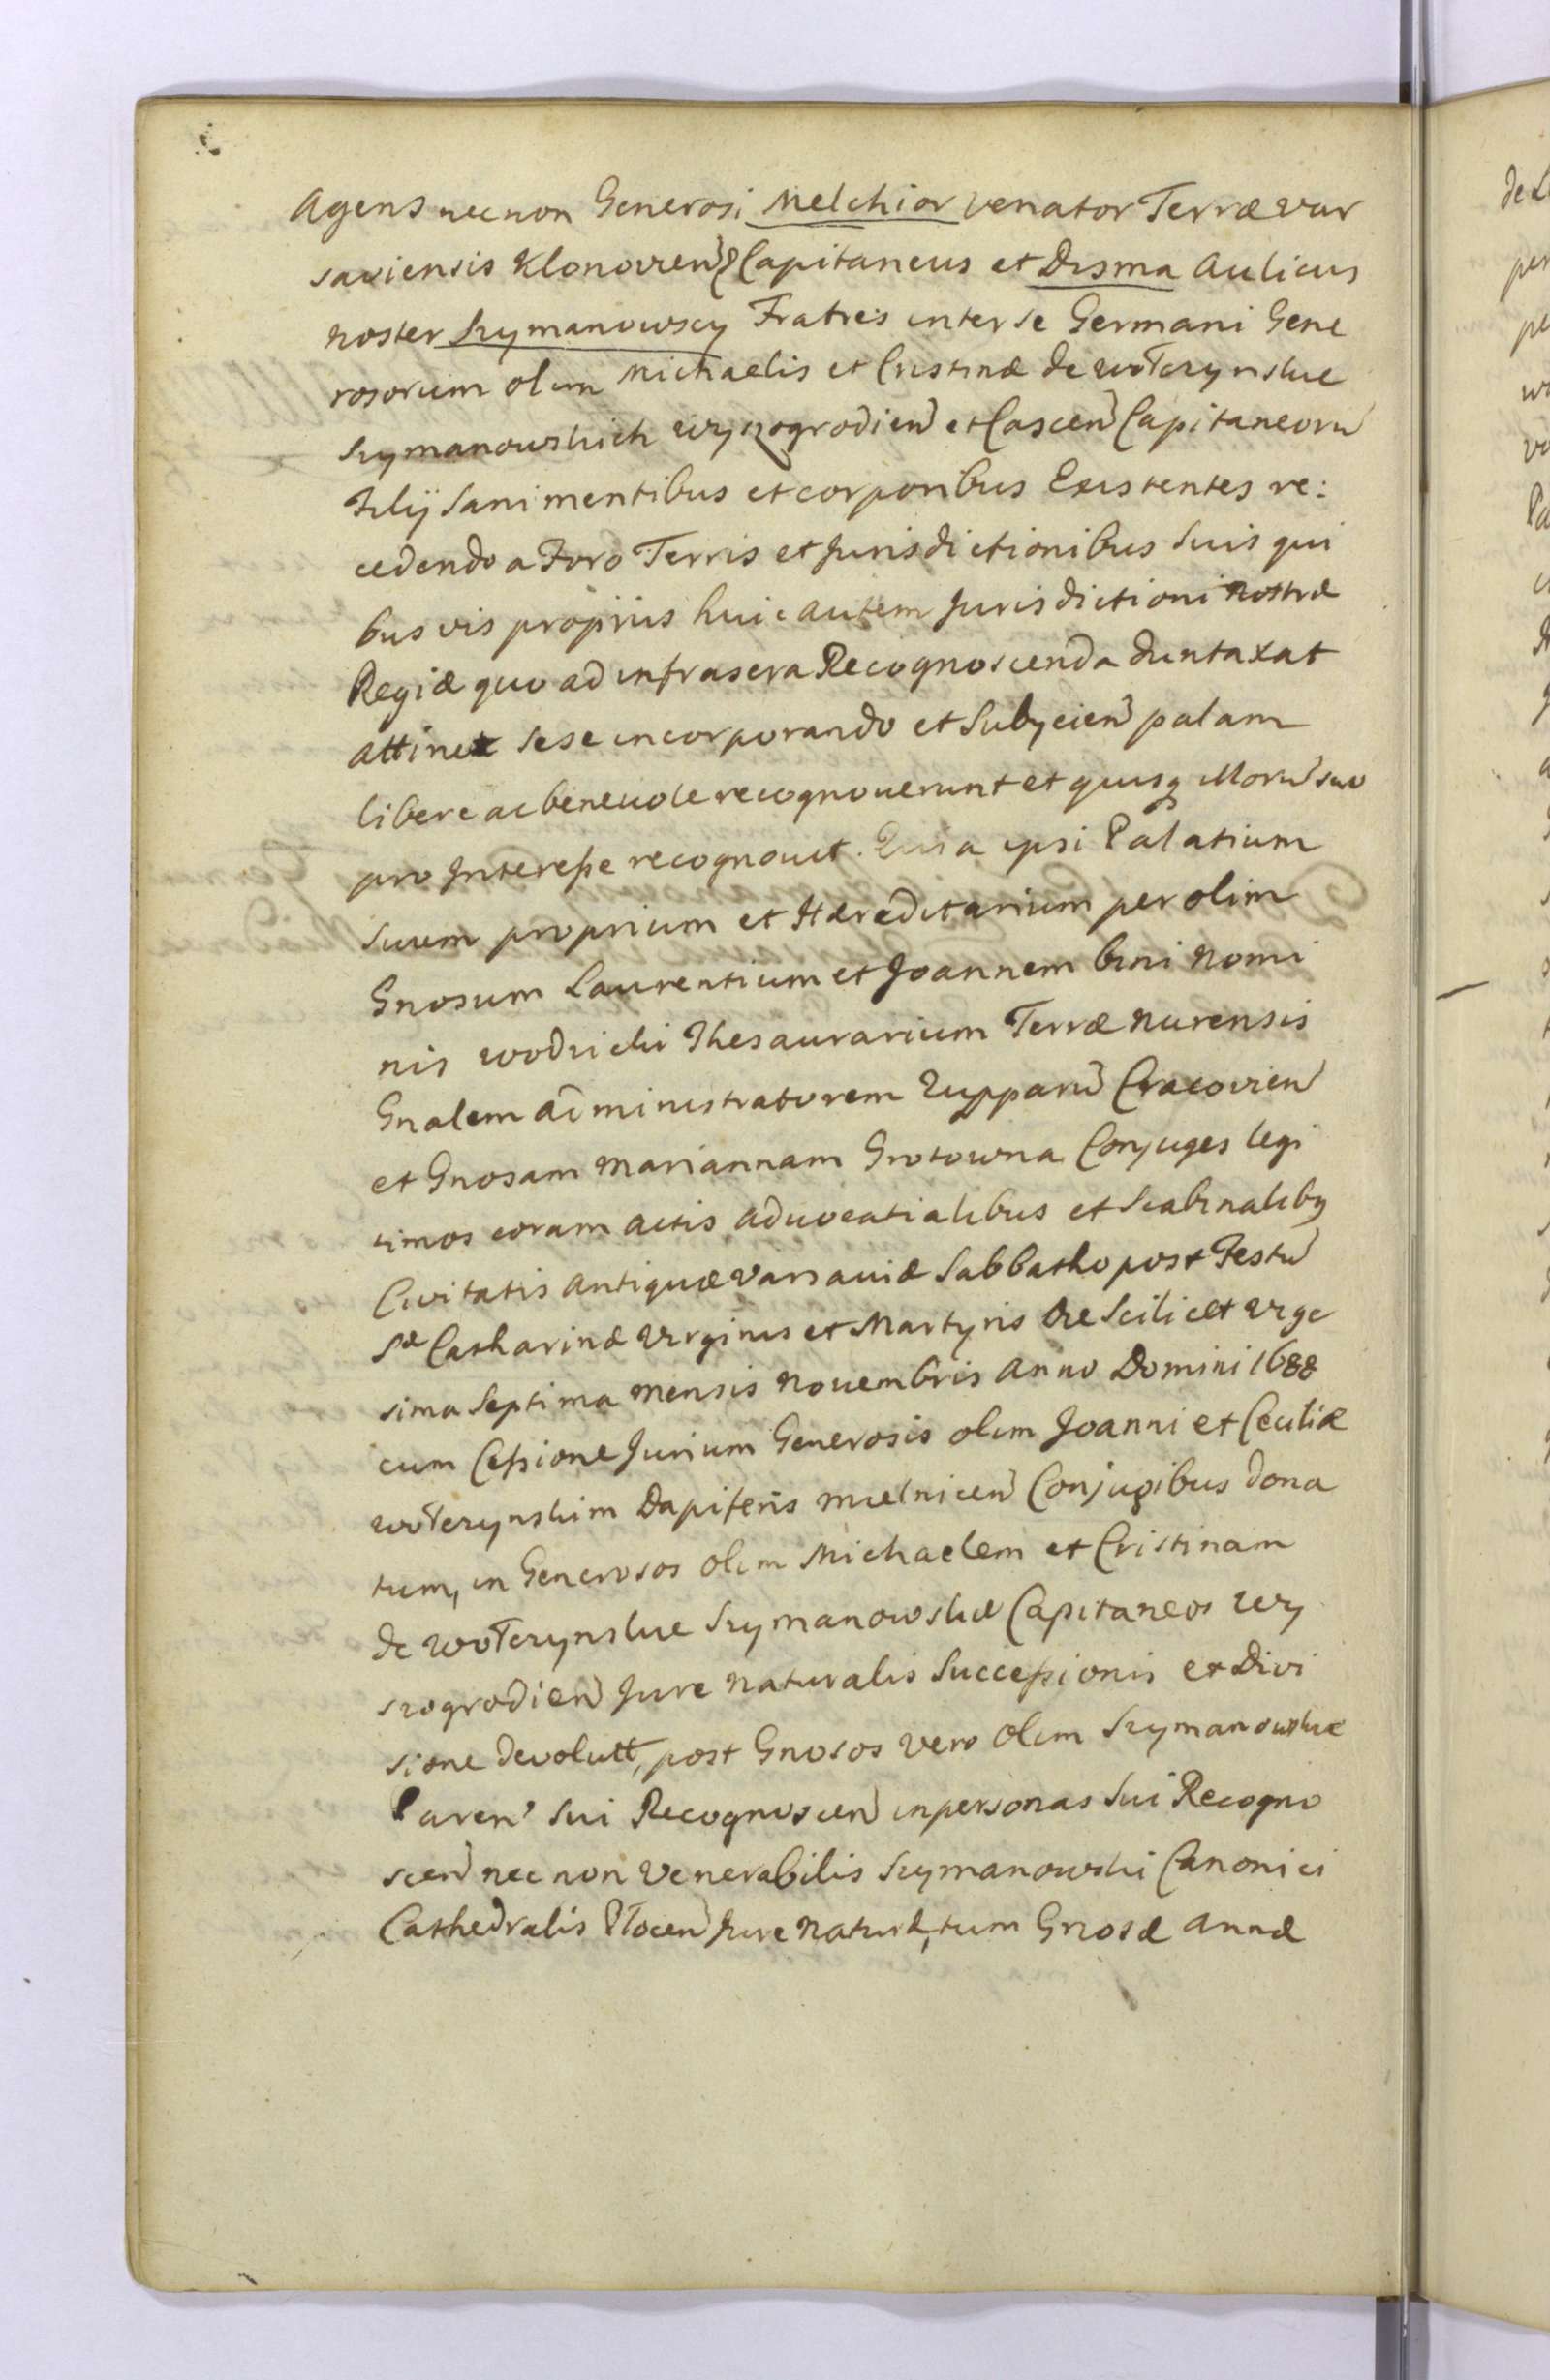 Agens necnon Generosi Melchior venator Terræ var
saviensis Klonovien Capitaneus et Disma Aulicus
noster Szymanowscy Fratres inter se Germani Gene
rosorum olim Michaelis et Cristinæ de Wołczynskie
Szymanowskich Wyszogrodien et Cascen Capitaneoru
Filij Sani mentibus et corporibus Existentes re:
cedendo a Foro Terris et Jurisdictionibus Suis qui
bus vis propriis huic autem Jurisdictioni nostræ
Regiæ quo ad infrascra Recognoscenda duntaxat
attinet sese incorporando et Subycien palam
libere ac beneuole recognouerunt et quisq Moru suo
pro Interesse recognouit. Quia ipsi Palatium
Suum proprium et Hæreditarium per olim
Gnosum Laurentium et Joannem bini nomi
nis Wodzicki Thesaurarium Terræ nurensis
Gnalem administratorem Zupparu Cracovien
et Gnosam Mariannam Grotowna Conjuges legi
timos coram actis aduocatialibus et Scabinalibq
Civitatis antiquæ varsaviæ Sabbatho post Festu
Sæ Catharinæ Virginis et Martyris die Scilicet vige
sima Septima mensis novembris anno Domini 1688
cum Cessione Jurium Generosis olim Joanni et Ceciliæ
Wołczynskim Dapiferis mielnicen Conjugibus dona
tum, in Generosos olim Michaelem et Cristinam
de Wołczynskie Szymanowskie Capitaneos Wy
szogrodien Jure naturalis Successionis et Divi
sione devolutt, post Gnosos vero olim Szymanowskie
Paren' sui Recognoscen in personas sui Recogno
scen nec non Venerabilis Szymanowski Canonici
Cathedralis Płocen Jure naturæ, tum Gnosæ annæ